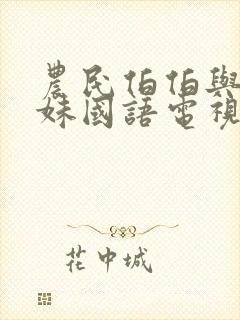 農民伯伯與
妹國語電視
花中城